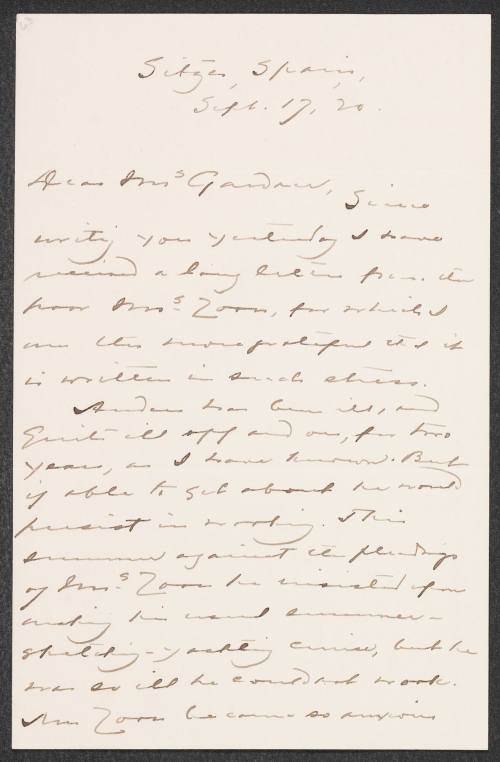 Sitges, Spain,
Sept. 17, 20.
Dear Mrs Gardner,
Since
writing you yesterday I have
received a long letter from the
poor Mrs. Zorn, for which I
am the more grateful as it
is written in such stress.
Anders has been ill, and
quite ill off and on, for two
years, as I have known. But
if able to get about he would
persist in working. This
summer against the pleadings
of Mrs. Zorn he insisted upon
making his usual summer-
sketching-yachting cruise, but he
was so ill he could not work.
Mrs Zorn became so anxious